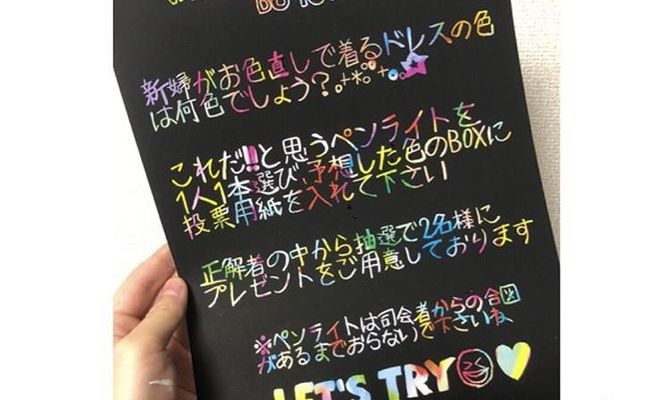 新婦がお色直しで着るドレスの色
は何色でしょう？
これだ!!と思うペンライトを
1人1本選び、予想した色のBOXに
投票用紙を入れて下さい
正解者の中から抽選で2名様に
プレゼントをご用意しております
※ペンライトは司会者からの合図
があるまでおらないで下さいね
LET'S TRY